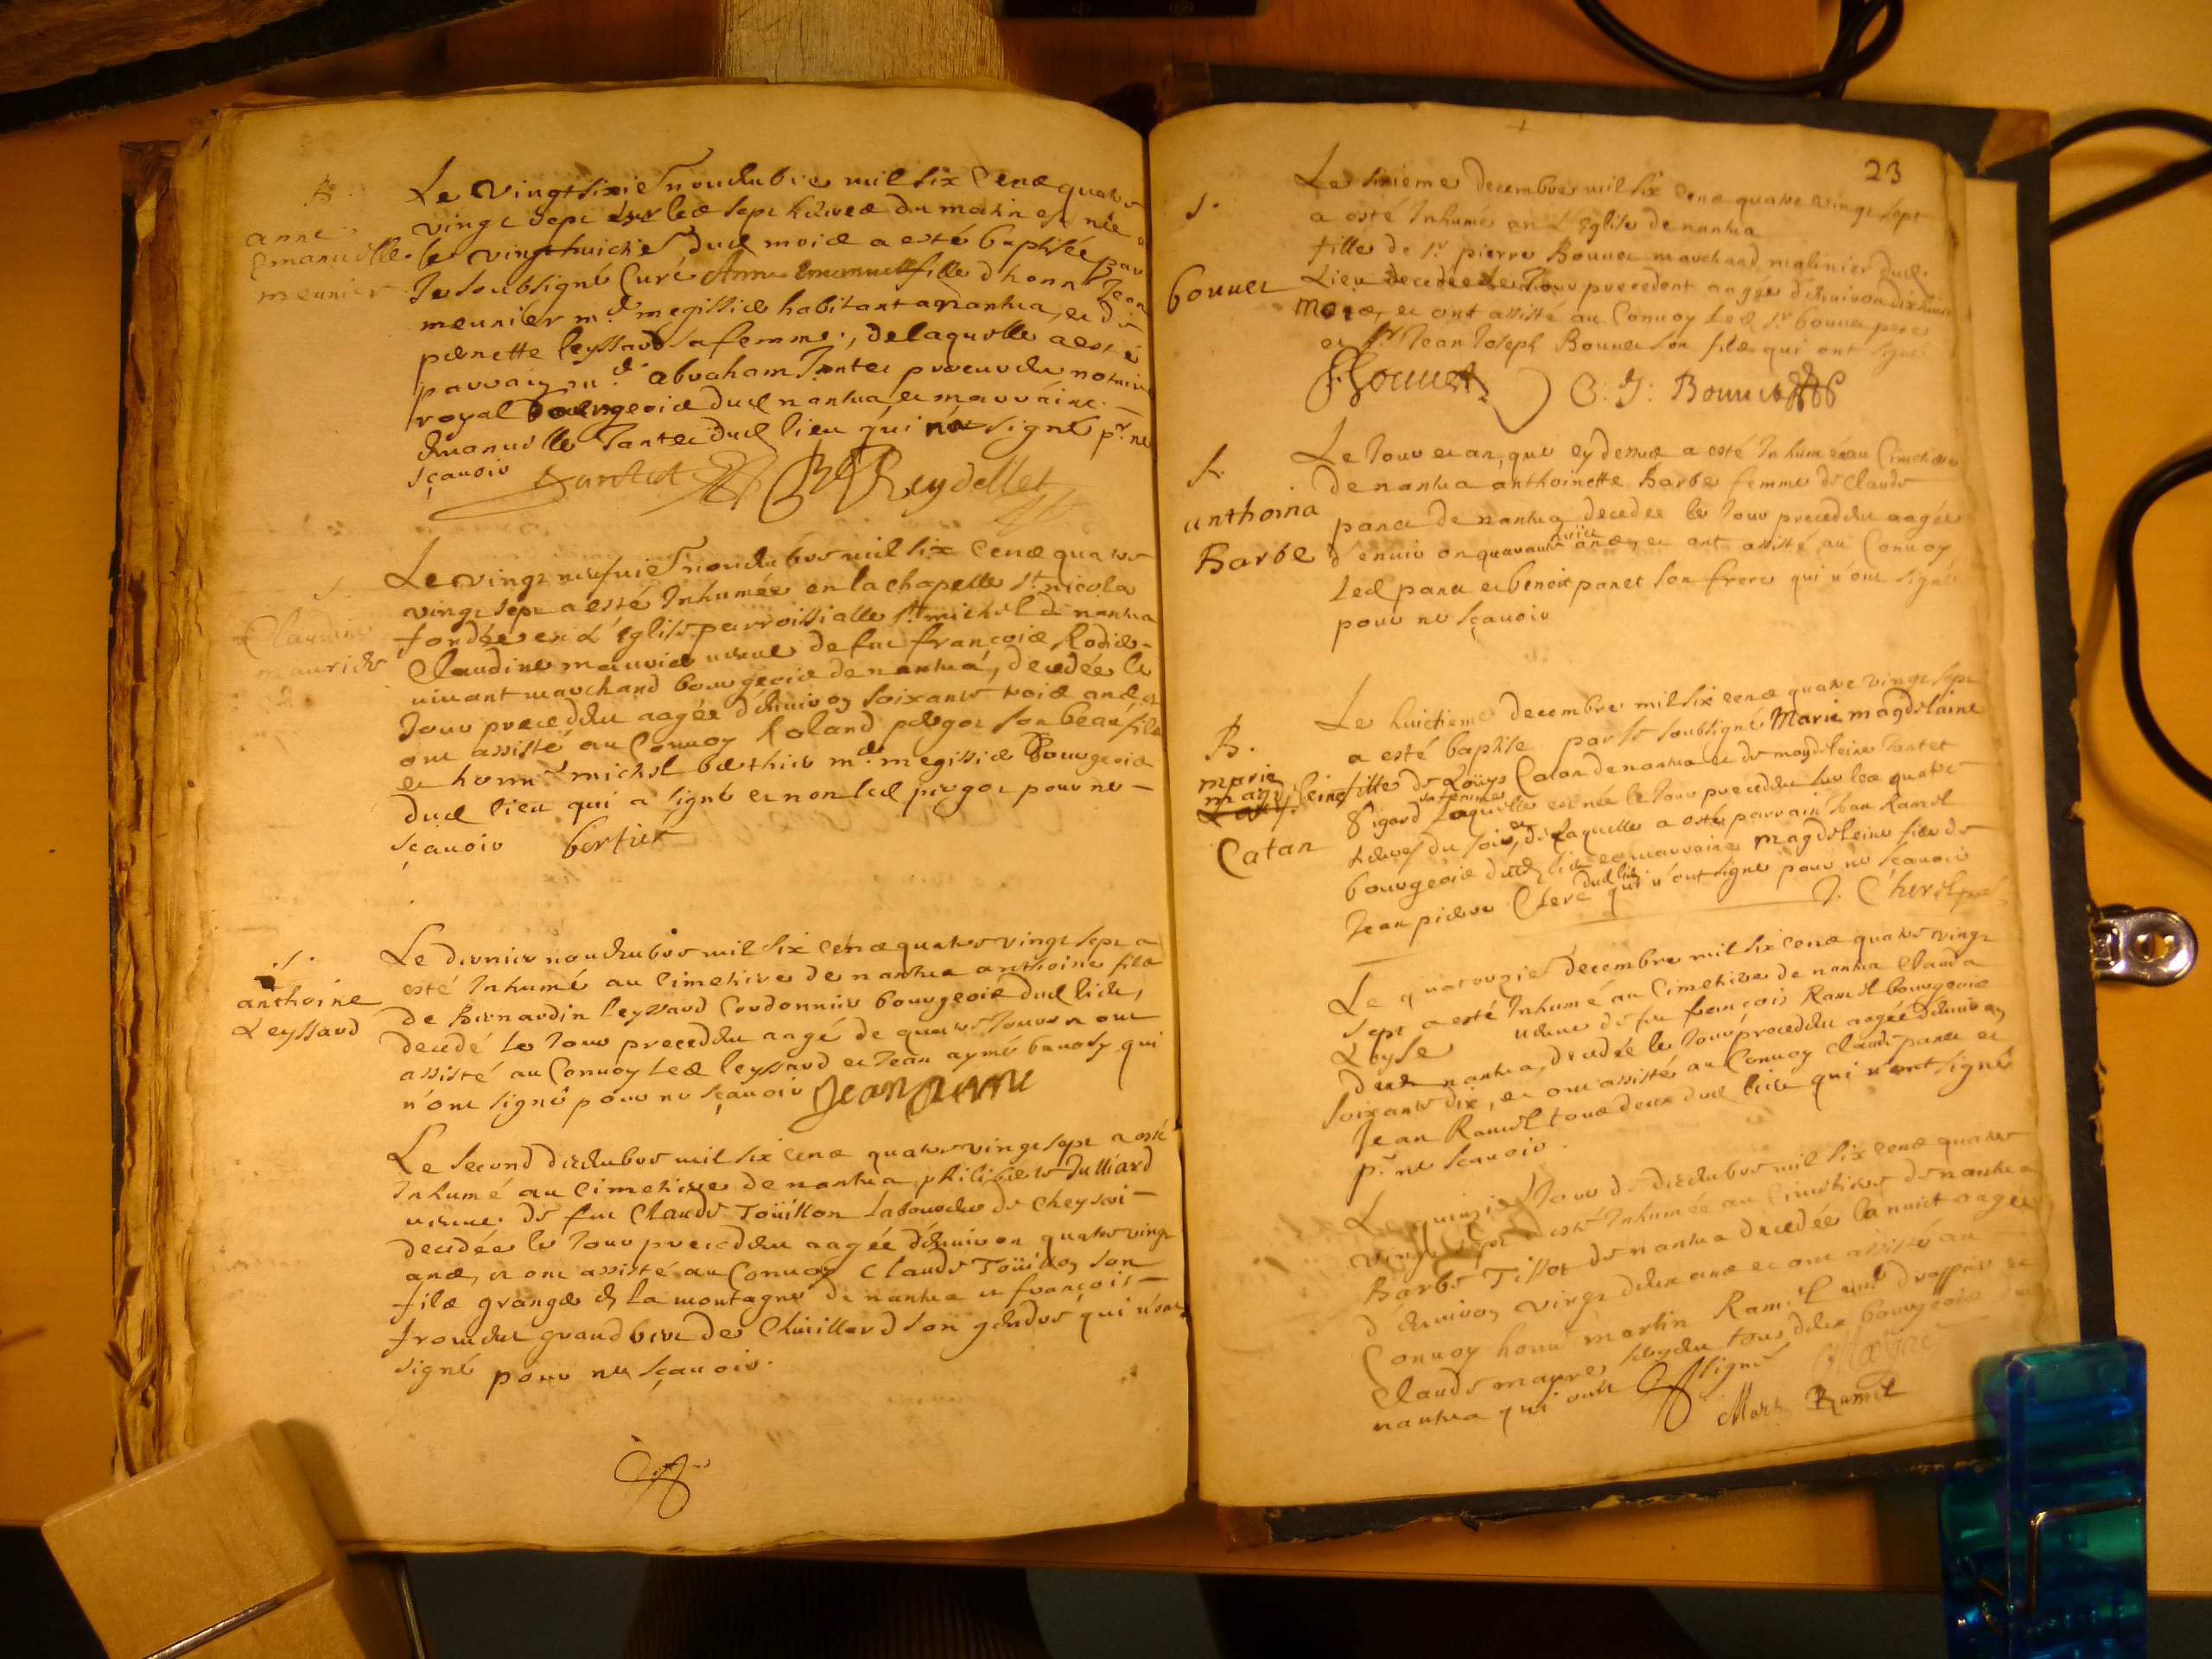 B.
anne
Emanuelle
meunier
Le vingt sixie nouembre mil six cens quatre
vingt sept sur les sept heures du matin est née et
le vingt huictie dud mois a esté baptisée par
Je soubsigné Curé Anne Emanuelle fille d honn Jean
meunier md megissie habitant a nantua, et de
pernette leyssard sa femme, de laquelle a esté
parrain md abraham Jantet procureur notaire
royal bourgeois dud nantua et marraine
Emanuelle Jantet dud lieu qui n'a signé pr ne
sçauoir Jantet Reydellet
S.
Claudine
maurier
Le vingt neufuie nouembre mil six cens quatre
vingt sept a esté Inhumée en la chapelle st nicola
fondée en L'église parroissialle st michel de nantua
Claudine maurier veuue de feu françois Rodier
viuant marchand bourgeois de nantua, decedée le
Jour precedent aagée d'enuiron soixante trois ans et
ont assisté au Conuoy Roland pergot son beau fils
et honn michel berthier md megissie Bourgeois
dud lieu qui a signé et non led pergot pour ne
sçauoir bertier
S.
anthoine
Leyssard
Le dernier nouembre mil six cens quatre vingt sept a
esté Inhumé au Cimetiere de nantua anthoine fils
de Bernardin leyssard Cordonnier bourgeois dud lieu,
decedé le Jour precedent aagé de quatre Jours n ont
assisté au Conuoy led leyssard et Jean aymé qui
n'ont signé pour ne sçauoir Jean
Le second decembre mil six cens quatre vingt sept a esté
Inhumé au Cimetiere de nantua philiberte Julliard
veuue de feu Claude Toüillon laboureur de
decedée le Jour precedent aagée d'enuiron quatre vingt
ans, et ont assisté au Conuoy Claude Toüillon son
fils granger de la montagne de nantua et françois
de son gendre qui n'ont
signé pour ne sçauoir.
23
S.
bouuet
Le sixieme decembre mil six cens quatre vingt sept
a esté Inhumé en L'Eglise de nantua
fille de sr pierre Bouuet marchand dud
Lieu decedée le Jour precedent aagée d'enuiron dix huict
mois, et ont assisté au Conuoy led sr bouuet pere
et sr Jean Joseph Bouuet son fils qui ont signé
Bouuet C: J: Bouuet
S.
anthoina
Barbe
Le Jour et an, que cy dessus a esté Inhumée au Cimetiere
de nantua anthoinette Barbe femme de Claude
panet de nantua decedee le Jour precedent aagée
d'enuiron quarante huict ans, et ont assisté au Conuoy
Led panet et benoit panet son frere qui n'ont signé
pour ne sçauoir
B.
marie
magdeleine
Catan
Le huictieme decembre mil six cens quatre vingt sept
a esté baptise par Je soubsigné Marie magdelaine
fille de Loüys Catan de nantua et de magdeleine Jantet
sa femme laquelle est née le Jour precedent sur les quatre
heures du soir, et de laquelle a esté parrain Jean Ramel
bourgeois dud lieu et marraine magdeleine fille de
Jean pierre Clerc dud lieu qui n'ont signé pour ne sçauoir
Le quatorzie decembre mil six cens quatre vingt
sept a esté Inhumé au Cimetiere de nantua Clauda
Leyse veuue de feu françois Ramel bourgeois
dud nantua, decedée le Jour precedent aagée d'enuiron
soixante dix, et ont assisté au Conuoy Claude panet et
Jean Ramel tous deux dud lieu qui n'ont signé
pr ne sçauoir.
Le quinzie Jour de decembre mil six cens quatre
vingt sept a esté Inhumée au Cimetiere de nantua
Barbe Tissot de nantua decedée la nuict aagée
d'enuiron vingt deux ans et ont assisté au
Conuoy honn martin Ramel md drappier et
Claude mayre tous deux bourgeois dud
nantua qui ont signé
Mart Ramel